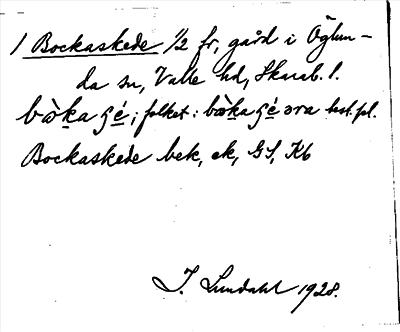 1 Bockaskede 1/2 fr, gård i Öglun-
da sn, Valle hd, Skarab. l.
bὰka ʂé; folket: bὰka ʂé əra best. pl.
Bockaskede bek, ek, GS, Kb
I. Lundahl 1928.